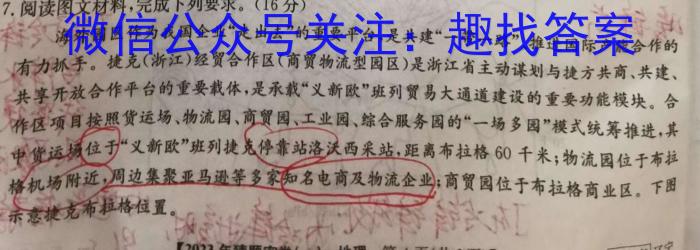 7. 阅读图文材料，完成下列要求。（16分）
微信公众号关注：趣找答案
作为我国企业"走出去"的重要平台，是共建"一带一路"、推进国际合作的
有力抓手。捷克(浙江)经贸合作区(商贸物流型园区)是浙江省主动谋划与捷方共商、共建、
共享开放合作平台的重要载体，是承载"义新欧"班列贸易大通道建设的重要功能模块。合
作区项目按照货运场、物流园、商贸园、工业园、综合服务园的"一场多园"模式统筹推进，其
中货运场位于"义新欧"班列捷克停靠站洛沃西采站，距离布拉格60千米；物流园位于布拉
格机场附近，周边集聚亚马逊等多家知名电商及物流企业；商贸园位于布拉格商业区。下图
示意捷克布拉格位置。